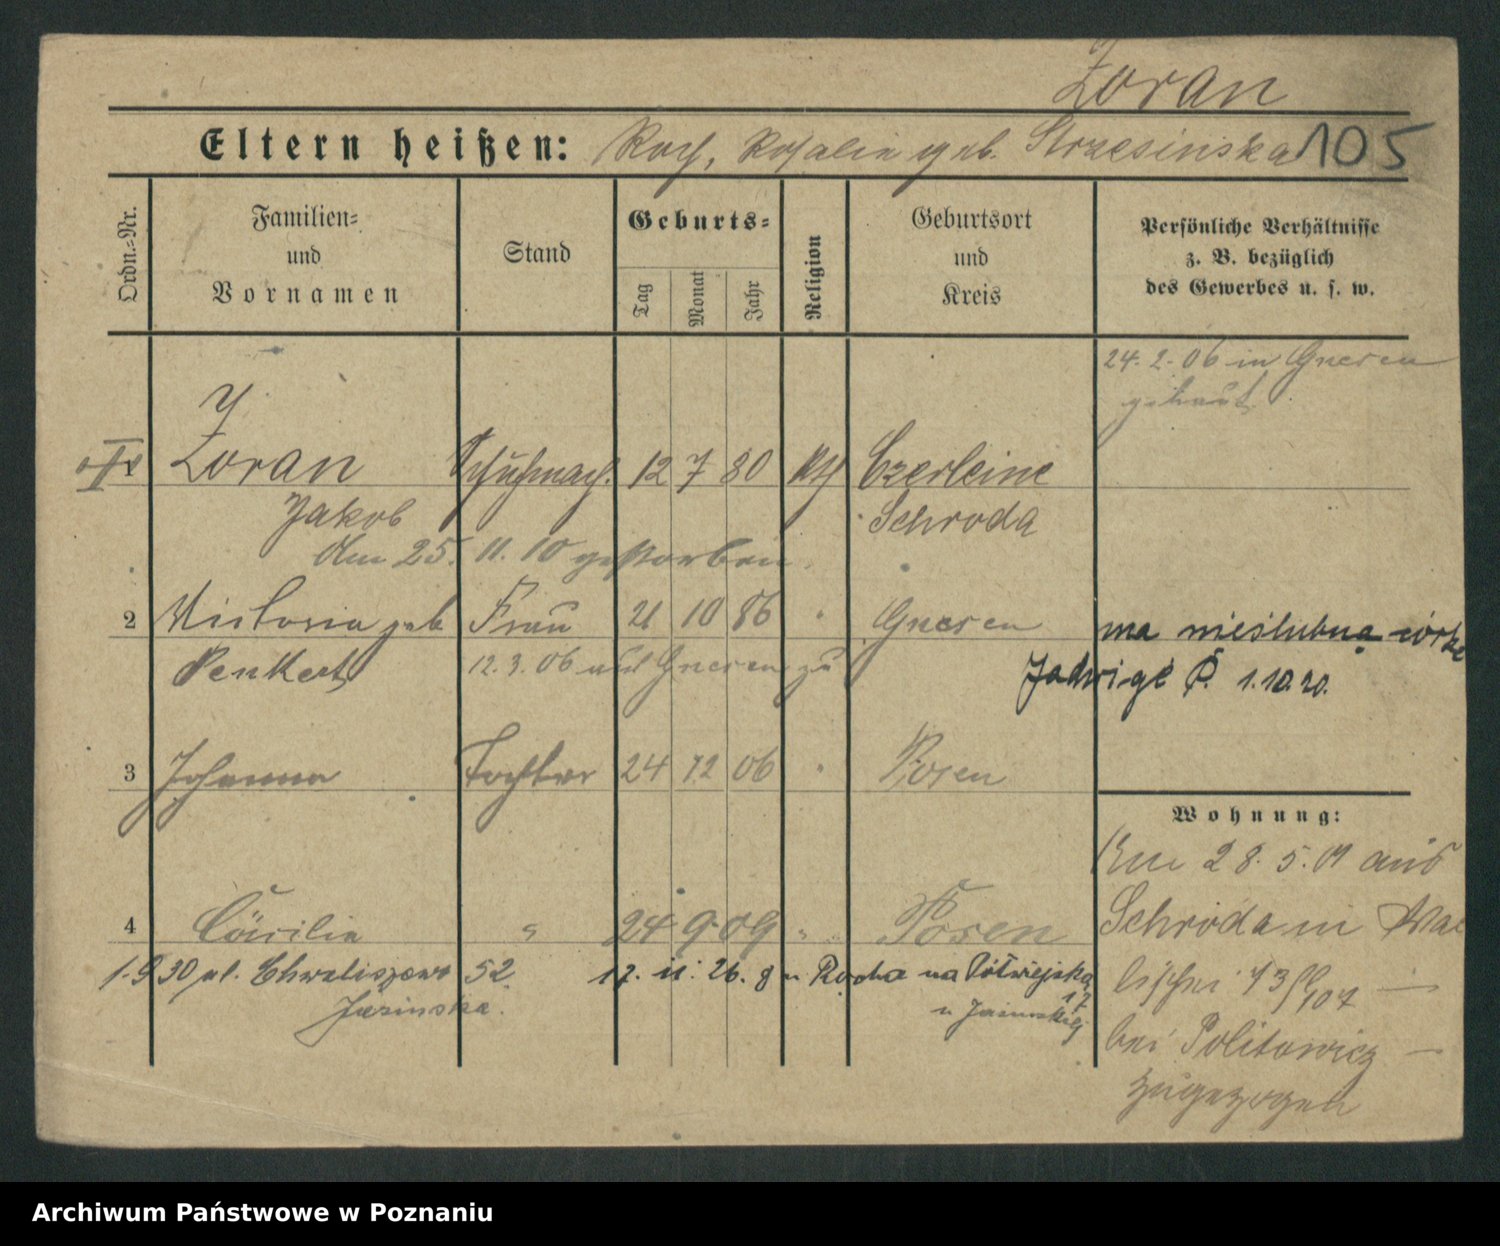 Zoran
Eltern heißen: Roch, Rosalie geb. Strzesinska 105
Ordn.-Nr.
Familien-
und
Vornamen
Stand
Geburts-
Tag
Monat
Jahr
Religion
Geburtsort
und
Kreis
Persönliche Verhältnisse
z. B. bezüglich
des Gewerbes u. s. w.
24. 2. 06 in Gnesen
getraut
Zoran Schuhmach. 12 7 80 kth Czerleine
Jakob Schroda
Am 25. 11. 10 gestorben
2 Victoria geb Frau 21 10 86 " Gnesen
Penkert 12. 3. 06 aus Gnesen zu
ma nieślubną córkę
Jadwigę 1.10.20.
3 Johanna Tochter 24 12 06 " Posen
Wohnung:
Am 28. 5. 09 aus
Schroda in Wal
lischei 73
bei Politowicz —
zugezogen
4 Cäcilie " 24 9 09 " Posen
1.9 30 ul. Chwaliszewo 52. 17. 11. 26. z u. Rocha na Półwiejska 17
Jasinska. u Jasinskiej
Archiwum Państwowe w Poznaniu